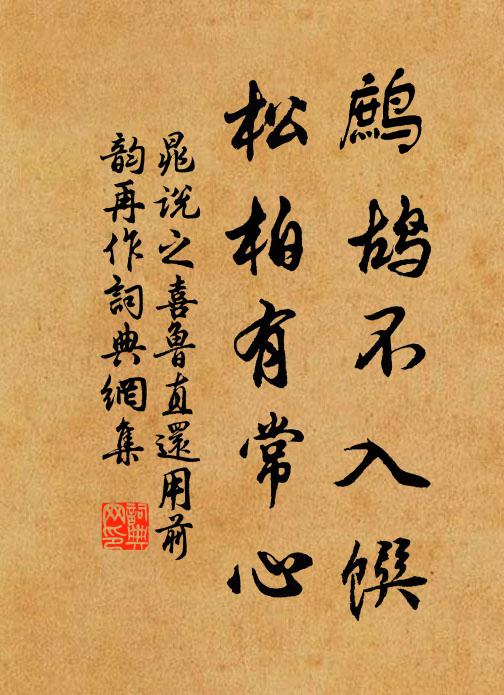 鷓鴣不入饌
松柏有常心
晁說之喜魯直還用前
韵再作詞典網集
詞典
网印